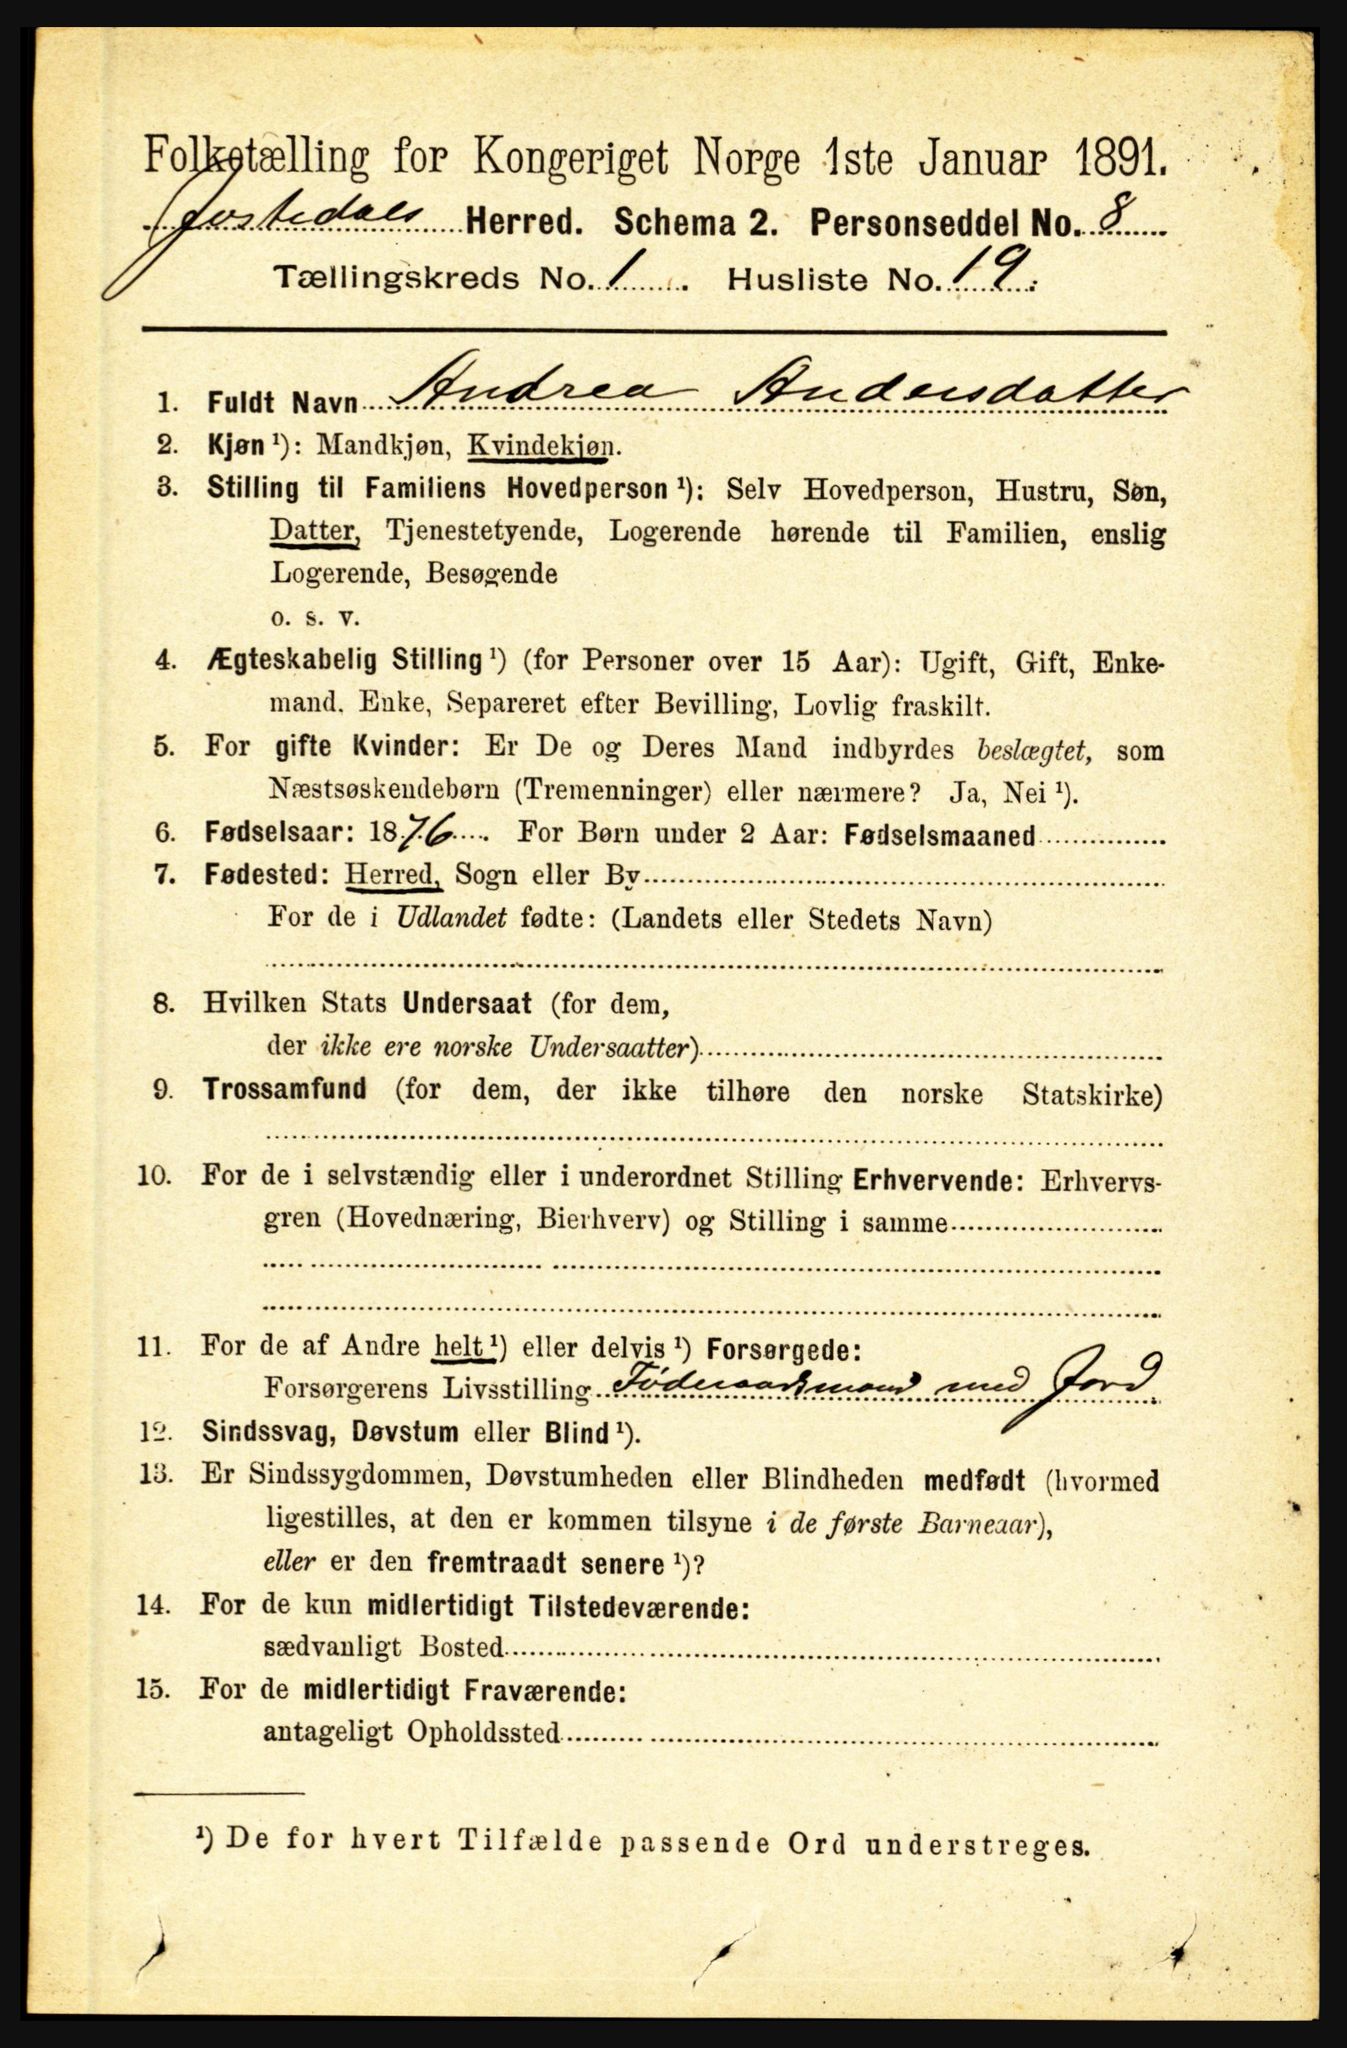 Folketælling for Kongeriget Norge 1ste Januar 1891.
Jostedals Herred. Schema 2. Personseddel No. 8
Tællingskreds No. 1. Husliste No. 19.
1. Fuldt Navn Andrea Andersdatter
2. Kjøn ¹): Mandkjøn, Kvindekjøn.
3. Stilling til Familiens Hovedperson ¹): Selv Hovedperson, Hustru, Søn,
Datter, Tjenestetyende, Logerende hørende til Familien, enslig
Logerende, Besøgende
o. s. v.
4. Ægteskabelig Stilling ¹) (for Personer over 15 Aar): Ugift, Gift, Enke-
mand, Enke, Separeret efter Bevilling, Lovlig fraskilt.
5. For gifte Kvinder: Er De og Deres Mand indbyrdes beslægtet, som
Næstsøskendebørn (Tremenninger) eller nærmere? Ja, Nei ¹).
6. Fødselsaar: 1876. For Børn under 2 Aar: Fødselsmaaned
7. Fødested: Herred, Sogn eller By
For de i Udlandet fødte: (Landets eller Stedets Navn)
8. Hvilken Stats Undersaat (for dem,
der ikke ere norske Undersaatter)
9. Trossamfund (for dem, der ikke tilhøre den norske Statskirke)
10. For de i selvstændig eller i underordnet Stilling Erhvervende: Erhvervs-
gren (Hovednæring, Bierhverv) og Stilling i samme
11. For de af Andre helt ¹) eller delvis ¹) Forsørgede:
Forsørgerens Livsstilling Føderaadsmand med Jord.
12. Sindssvag, Døvstum eller Blind ¹).
13. Er Sindssygdommen, Døvstumheden eller Blindheden medfødt (hvormed
ligestilles, at den er kommen tilsyne i de første Barneaar),
eller er den fremtraadt senere ¹)?
14. For de kun midlertidigt Tilstedeværende:
sædvanligt Bosted
15. For de midlertidigt Fraværende:
antageligt Opholdssted
¹) De for hvert Tilfælde passende Ord understreges.